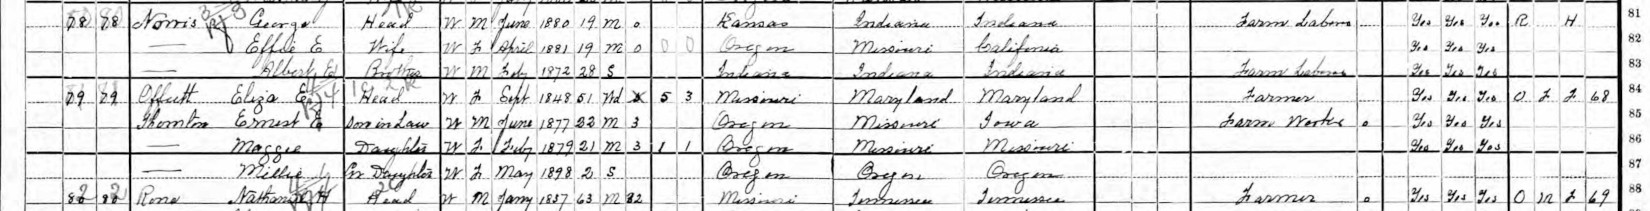 88 88 Norris George Head W M June 1880 19 M 0 Kansas Indiana Indiana Farm Labor Yes Yes Yes R H 81
— Effie E Wife W F April 1881 19 M 0 0 0 Oregon Missouri California Yes Yes Yes 82
— Albert Brother W M Feb 1872 28 S Indiana Indiana Indiana Farm Labor Yes Yes Yes 83
89 89 Offutt Eliza E Head W F Sept 1848 51 Wd 5 3 Missouri Maryland Maryland Farmer Yes Yes Yes O F F 68 84
Thornton Ernest E Son in Law W M June 1877 22 M 3 Oregon Missouri Iowa Farm Worker 0 Yes Yes Yes 85
— Maggie Daughter W F Feby 1879 21 M 3 1 1 Oregon Missouri Missouri Yes Yes Yes 86
— Millie Gr Daughter W F May 1898 2 S Oregon Oregon Oregon 87
Rone Nathaniel H Head W M Jany 1837 63 M 32 Missouri Tennessee Tennessee Farmer 0 Yes Yes Yes O M F 69 88